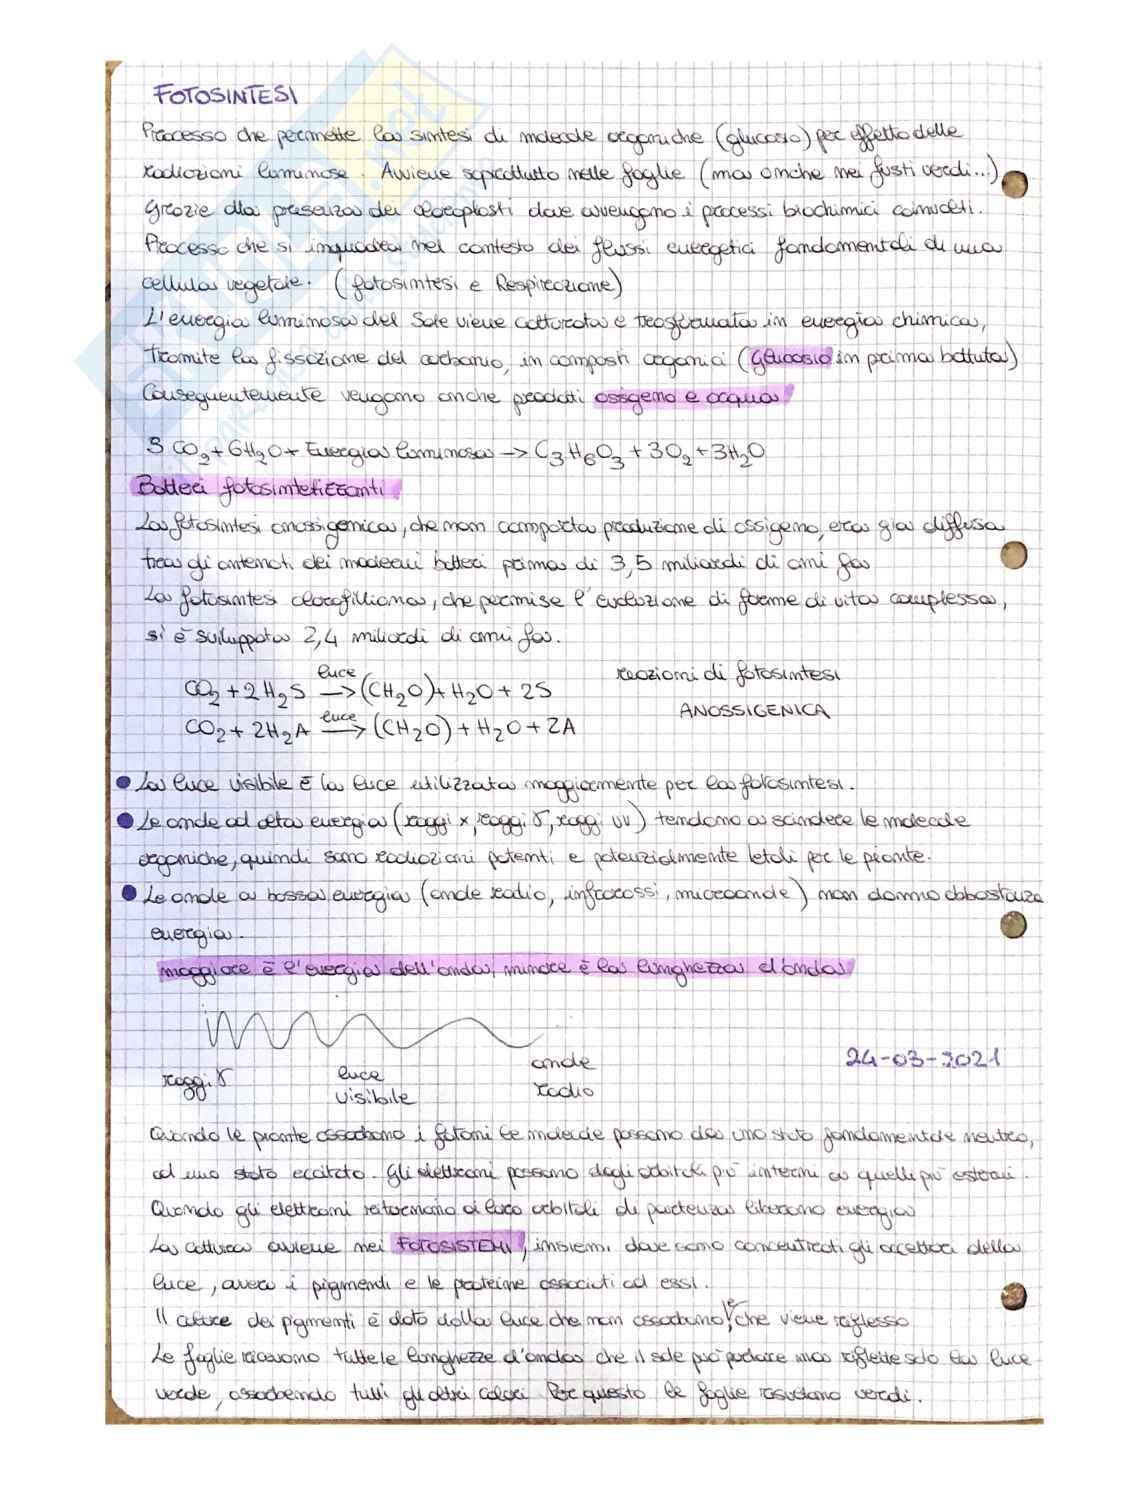 FOTOSINTESI
Processo che permette la sintesi di molecole organiche (glucosio) per effetto delle
radiazioni luminose. Avviene soprattutto nelle foglie (ma anche nei fusti verdi...)
grazie alla presenza dei cloroplasti dove avvengono i processi biochimici coinvolti.
Processo che si inquadra nel contesto dei flussi energetici fondamentali di una
cellula vegetale. (fotosintesi e Respirazione)
L'energia luminosa del Sole viene catturata e trasformata in energia chimica,
tramite la fissazione del carbonio, in composti organici (glucosio in prima battuta)
Conseguentemente vengono anche prodotti ossigeno e acqua
3 CO₂ + 6H₂O + Energia luminosa → C₃H₆O₃ + 3O₂ + 3H₂O
Batteri fotosintetizzanti
La fotosintesi anossigenica, che non comporta produzione di ossigeno, era già diffusa
tra gli antenati dei moderni batteri prima di 3,5 miliardi di anni fa
La fotosintesi clorofilliana, che permise l'evoluzione di forme di vita complessa,
si è sviluppata 2,4 miliardi di anni fa.
CO₂ + 2H₂S luce → (CH₂O) + H₂O + 2S reazioni di fotosintesi
CO₂ + 2H₂A luce → (CH₂O) + H₂O + 2A ANOSSIGENICA
• La luce visibile è la luce utilizzata maggiormente per la fotosintesi.
• Le onde ad alta energia (raggi x, raggi γ, raggi UV) tendono a scindere le molecole
organiche, quindi sono radiazioni potenti e potenzialmente letali per le piante.
• Le onde a bassa energia (onde radio, infrarossi, microonde) non danno abbastanza
energia.
maggiore è l'energia dell'onda, minore è la lunghezza d'onda
24-03-2021
raggi γ luce visibile onde radio
Quando le piante assorbono i fotoni le molecole passano da uno stato fondamentale neutro,
ad uno stato eccitato. Gli elettroni passano dagli orbitali più interni a quelli più esterni.
Quando gli elettroni ritornano ai loro orbitali di partenza liberano energia
La cattura avviene nei FOTOSISTEMI, insiemi dove sono concentrati gli accettori della
luce, ovvero i pigmenti e le proteine associati ad essi.
Il colore dei pigmenti è dato dalla luce che non assorbono, e che viene riflesso
Le foglie ricevono tutte le lunghezze d'onda che il sole può portare ma riflette solo la luce
verde, assorbendo tutti gli altri colori. Per questo le foglie risultano verdi.